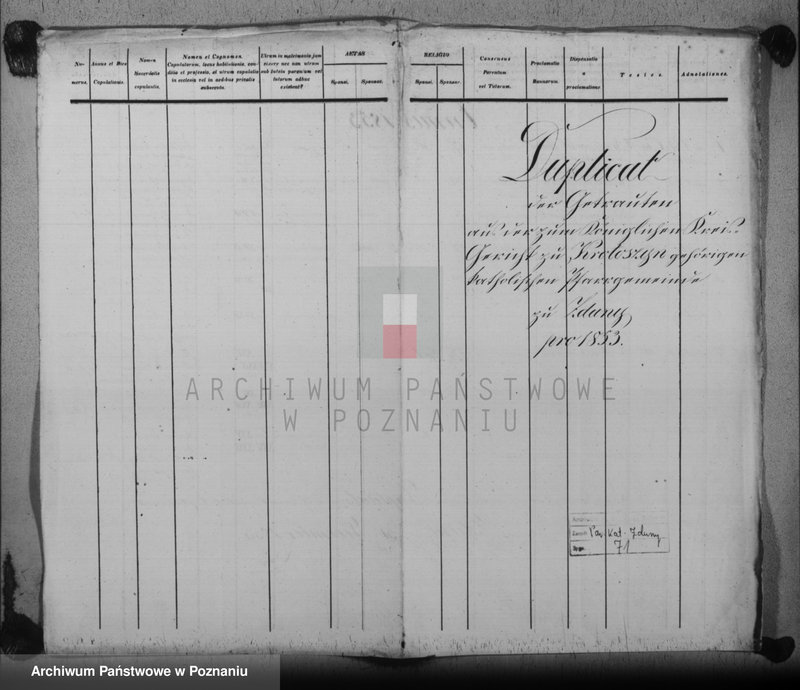 Numerus.
Annus et Dies Copulationis.
Nomen Sacerdotis copulantis.
Nomen et Cognomen.
Copulatorum, locus habitationis, conditio et professio, et utrum copulatio in ecclesia vel in aedibus privatis
Utrum in matrimonio jam vixere nec non utrum sub tutela parentum vel tutorum adhuc existent?
AETAS
Sponsi.
Sponsae.
RELIGIO
Sponsi.
Sponsae.
Consensus Parentum vel Tutorum.
Proclamatio Bannorum.
Dispensatio a proclamatione
Testes.
Adnotationes.
Duplicat
der Getrauten
aus der zum Königlichen Kreis-
Gericht zu Krotoszyn gehörigen
katholischen Pfarrgemeinde
zu Zduny
pro 1853.
ARCHIWUM PAŃSTWOWE
W POZNANIU
Par. Kat. Zduny
71
Archiwum Państwowe w Poznaniu